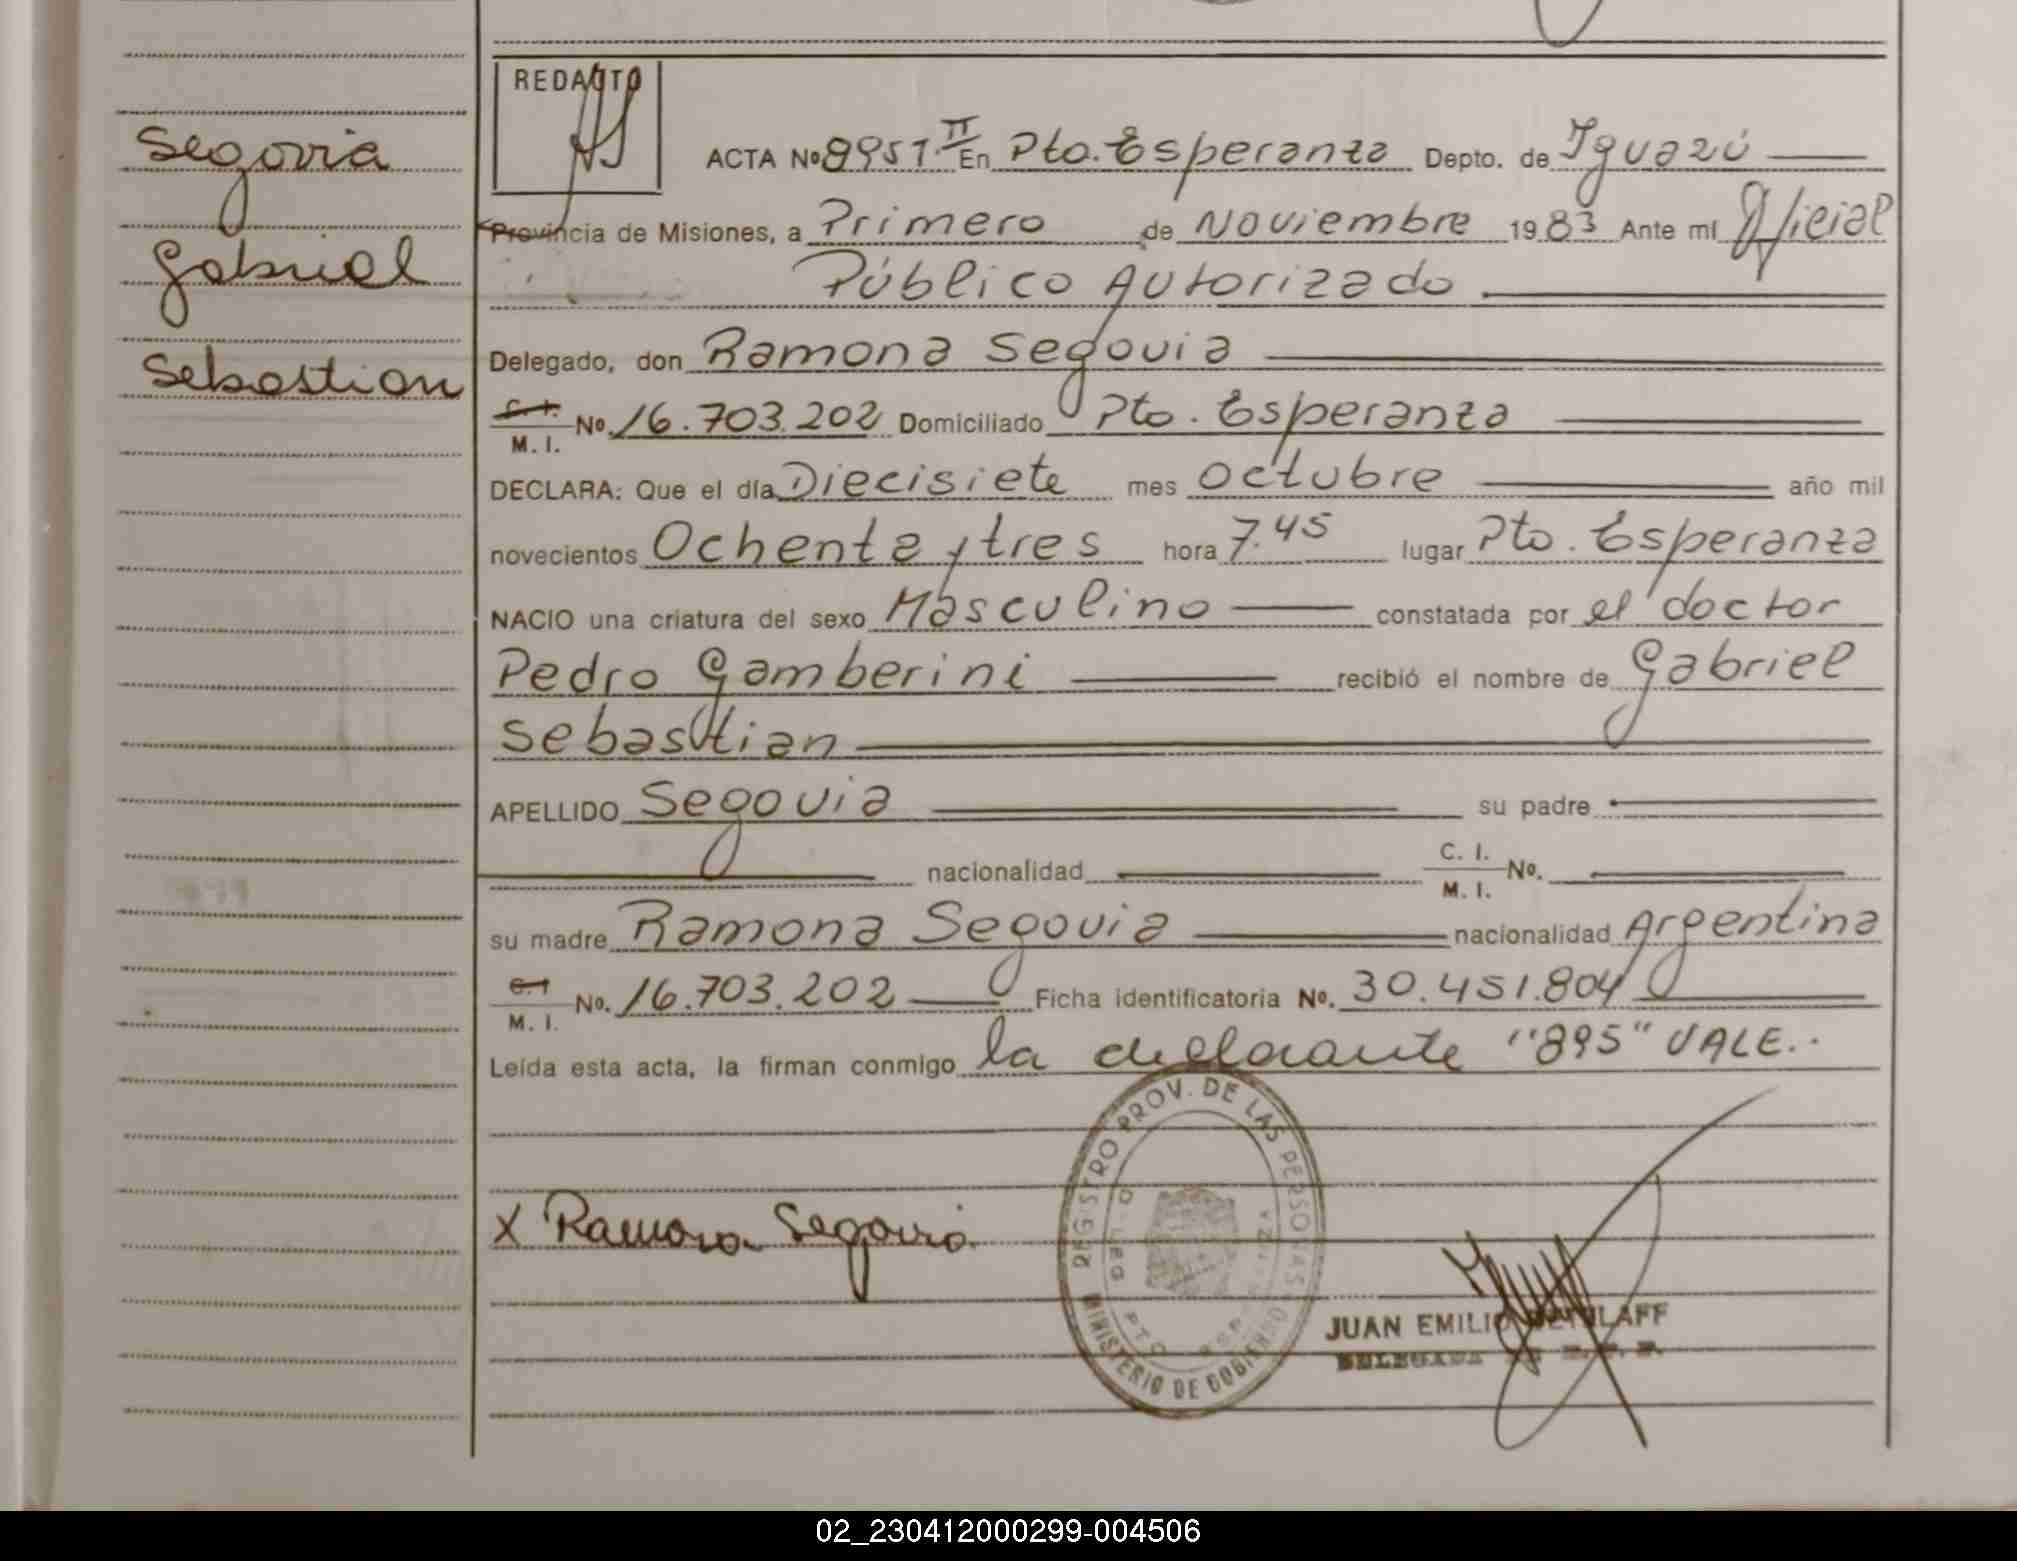 REDACTO
Segovia
Gabriel
Sebastian
ACTA Nº 895 T. II En Pto. Esperanza Depto. de Iguazú
Provincia de Misiones, a Primero de Noviembre 1983 Ante mí Oficial
Público Autorizado
Delegado, don Ramona Segovia
C. I. M. I. No. 16.703.202 Domiciliado Pto. Esperanza
DECLARA: Que el día Diecisiete mes octubre año mil
novecientos Ochenta y tres hora 7.45 lugar Pto. Esperanza
NACIO una criatura del sexo Masculino constatada por el doctor
Pedro Gamberini recibió el nombre de Gabriel
Sebastian
APELLIDO Segovia su padre
nacionalidad C. I. M. I. No.
su madre Ramona Segovia nacionalidad Argentina
C. I. M. I. No. 16.703.202 Ficha identificatoria No. 30.451.804
Leída esta acta, la firman conmigo la declarante "895" VALE..
REGISTRO PROV. DE LAS PERSONAS
MINISTERIO DE GOBIERNO
X Ramona Segovia
JUAN EMILIO
02_230412000299-004506